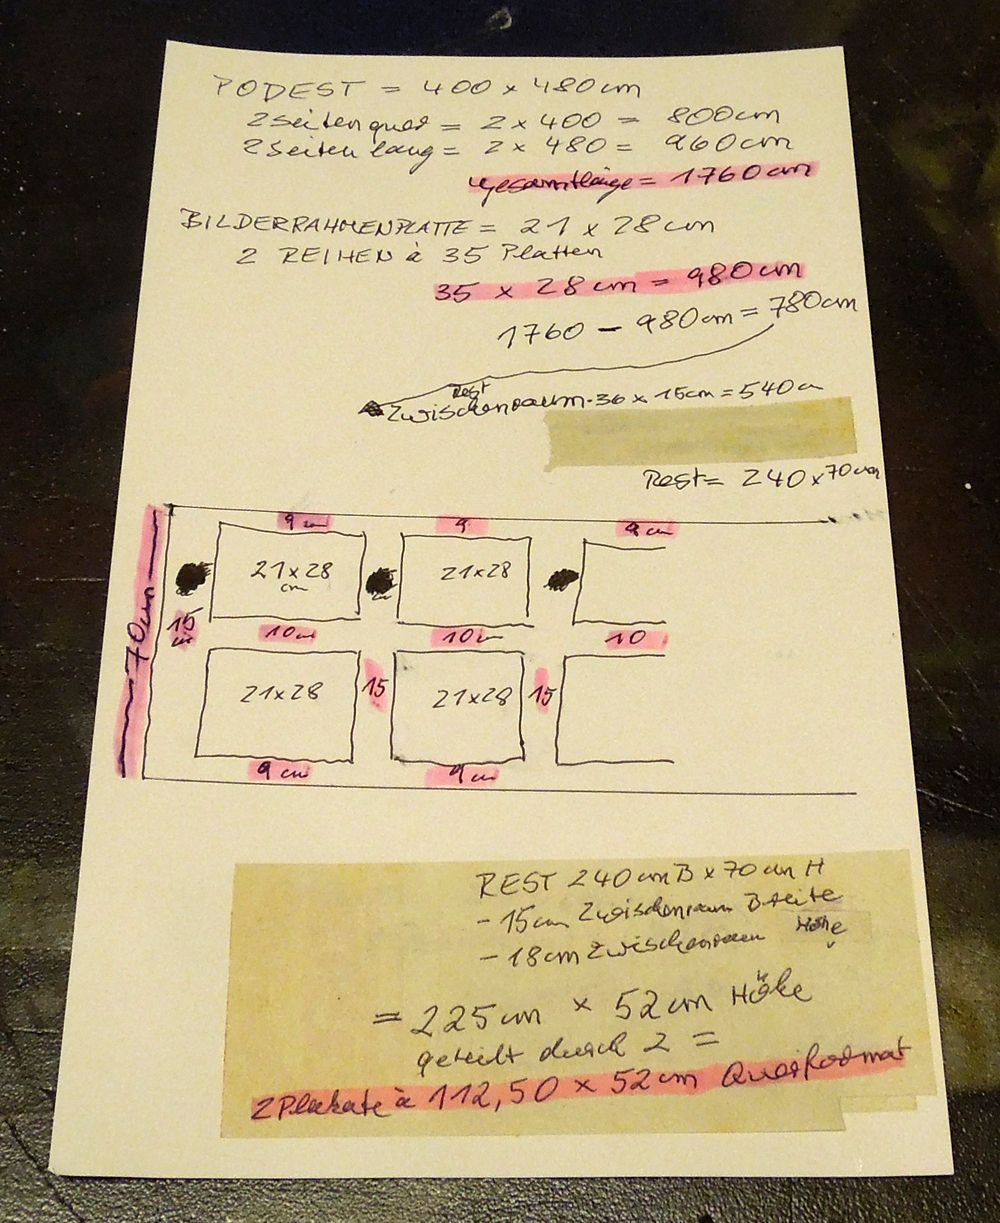 PODEST = 400 x 480cm
2 Seiten quer = 2 x 400 = 800cm
2 Seiten lang = 2 x 480 = 960cm
Gesamtlänge = 1760cm
BILDERRAHMENPLATTE = 21 x 28cm
2 REIHEN à 35 Platten
35 x 28cm = 980cm
1760 - 980cm = 780cm
Rest
Zwischenraum 36 x 15cm = 540c
Rest = 240 x 70cm
9 cm 9 9 cm
21 x 28 cm 21 x 28
70cm
15 cm 10cm 10c 10
21 x 28 15 21 x 28 15
9 cm 9 cm
REST 240cm B x 70cm H
- 15cm Zwischenraum Breite
- 18cm Zwischenraum Höhe
= 225cm x 52cm Höhe
geteilt durch 2 =
2 Plakate à 112,50 x 52cm Querformat